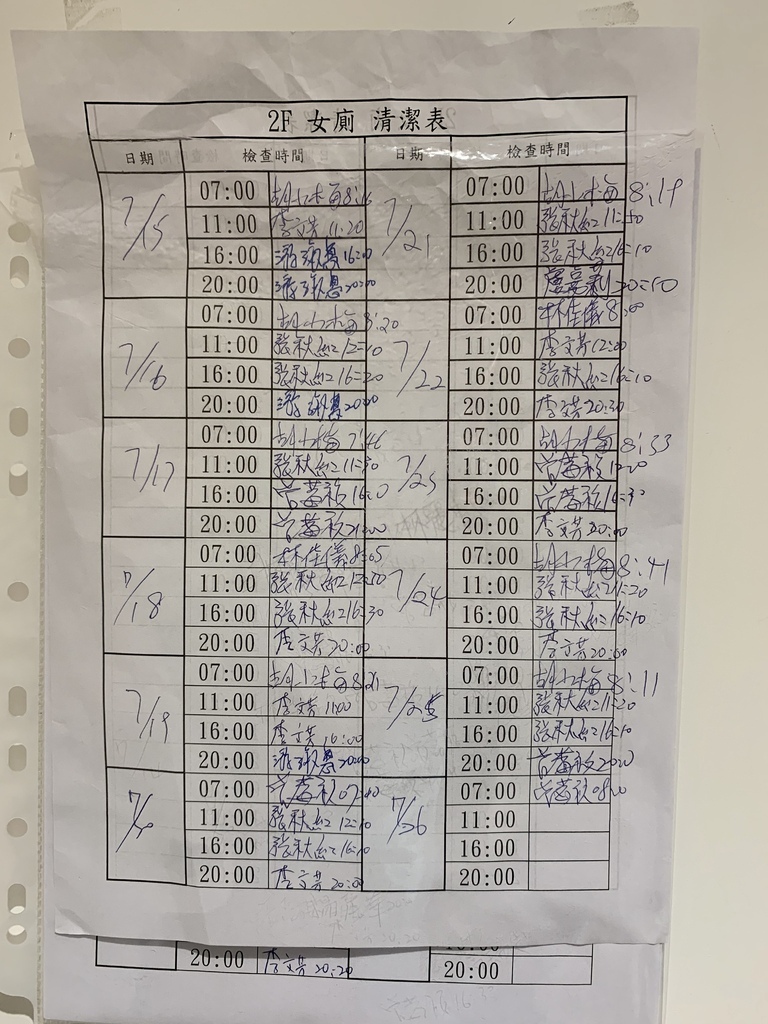 2F 女廁 清潔表
日期 檢查時間 日期 檢查時間
7/15 07:00 胡小梅 8:16 7/21 07:00 胡小梅 8:19
11:00 李文芳 11:20 11:00 張秋紅 11:50
16:00 游淑惠 16:00 16:00 張秋紅 16:10
20:00 游淑惠 20:00 20:00 20:50
7/16 07:00 胡小梅 8:20 7/22 07:00 林佳儀 8:00
11:00 張秋紅 12:10 11:00 李文芳 12:00
16:00 張秋紅 16:20 16:00 張秋紅 16:10
20:00 游淑惠 20:00 20:00 李文芳 20:30
7/17 07:00 胡小梅 7:46 7/23 07:00 胡小梅 8:33
11:00 張秋紅 11:30 11:00
16:00 16:00
20:00 20:00 李文芳 20:00
7/18 07:00 林佳儀 8:05 7/24 07:00 胡小梅 8:41
11:00 張秋紅 12:50 11:00 張秋紅
16:00 張秋紅 16:30 16:00 張秋紅 16:10
20:00 李文芳 20:00 20:00 李文芳 20:00
7/19 07:00 胡小梅 8:21 7/25 07:00 胡小梅 8:11
11:00 李文芳 11:00 11:00 張秋紅 11:20
16:00 李文芳 16:00 16:00 張秋紅 16:10
20:00 游淑惠 20:00 20:00
07:00 7/26 07:00
11:00 張秋紅 12:10 11:00
16:00 張秋紅 16:10 16:00
20:00 李文芳 20:00 20:00
20:00 李文芳 20:20 20:00